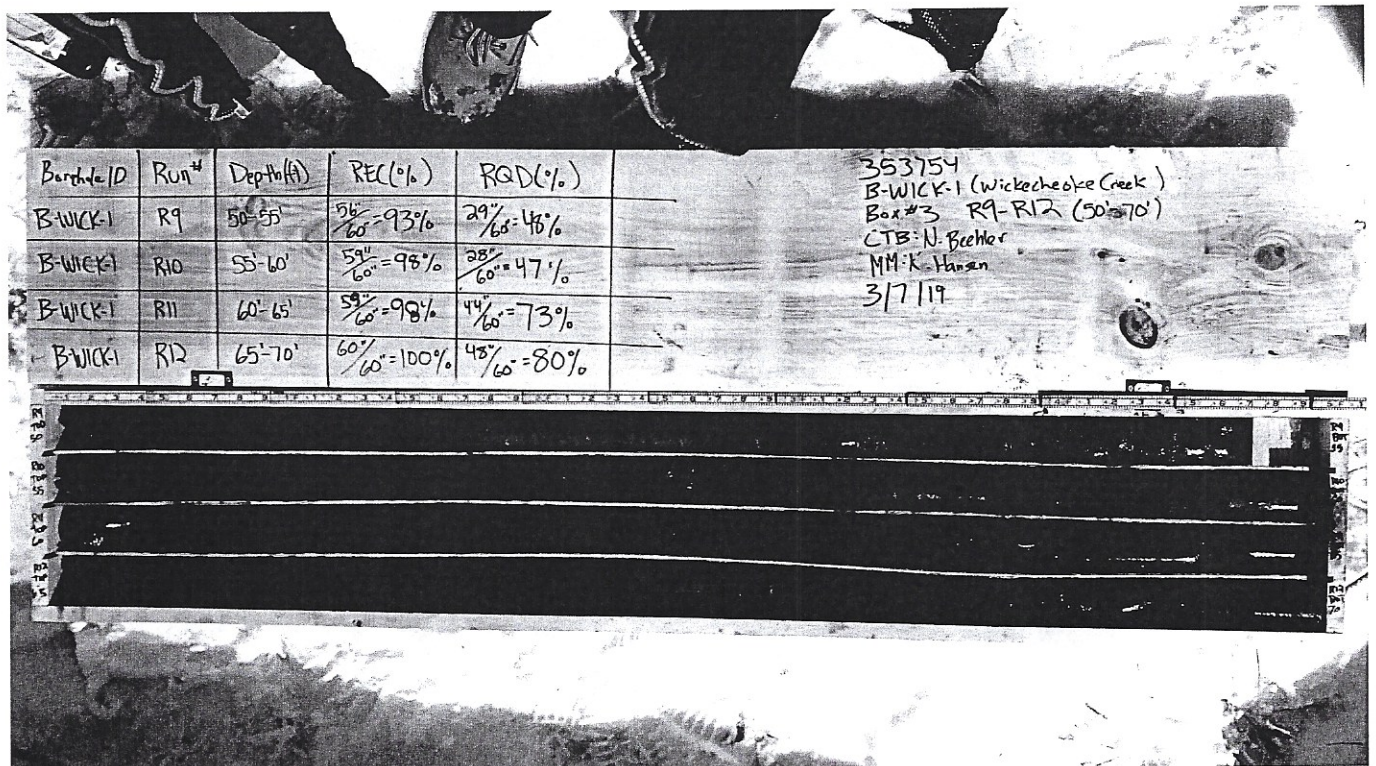 Borehole ID Run# Depth(ft) REC(%) RQD(%)
B-WICK-1 R9 50'-55' 56"/60"=93% 29"/60"=48%
B-WICK-1 R10 55'-60' 59"/60"=98% 28"/60"=47%
B-WICK-1 R11 60'-65' 59"/60"=98% 44"/60"=73%
B-WICK-1 R12 65'-70' 60"/60"=100% 48"/60"=80%
353754
B-WICK-1 (Wickecheoke Creek)
Box #3 R9-R12 (50'-70')
CTB: N. Beehler
MM: K. Hansen
3/7/19
R9
Bot
55
R12
Bot
70